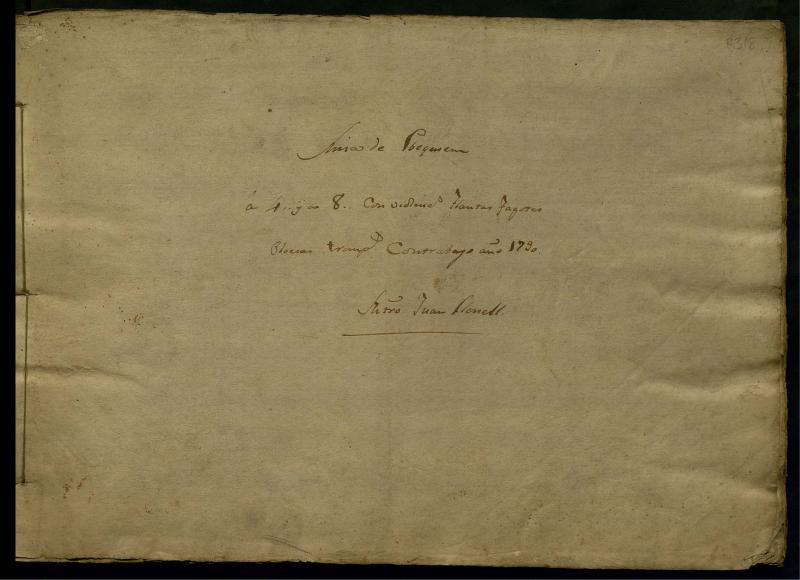 Missa de Requiem
á 4.. y a 8.. Con violines Flautas Fagotes
Oboeses tromps Contrabajo año 1790.
Mtro Juan Bonell